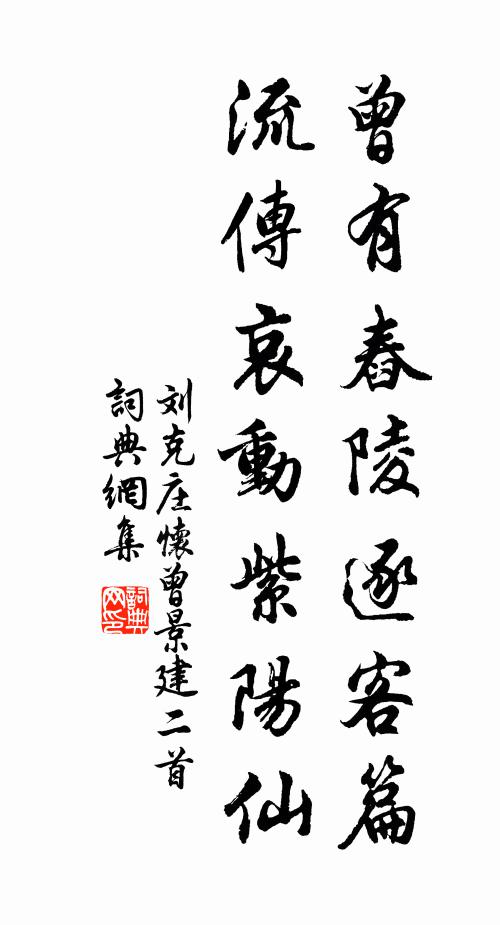 曾有舂陵逐客篇
流傳哀動紫陽仙
刘克庄懷曾景建二首
詞典網集
詞典网印